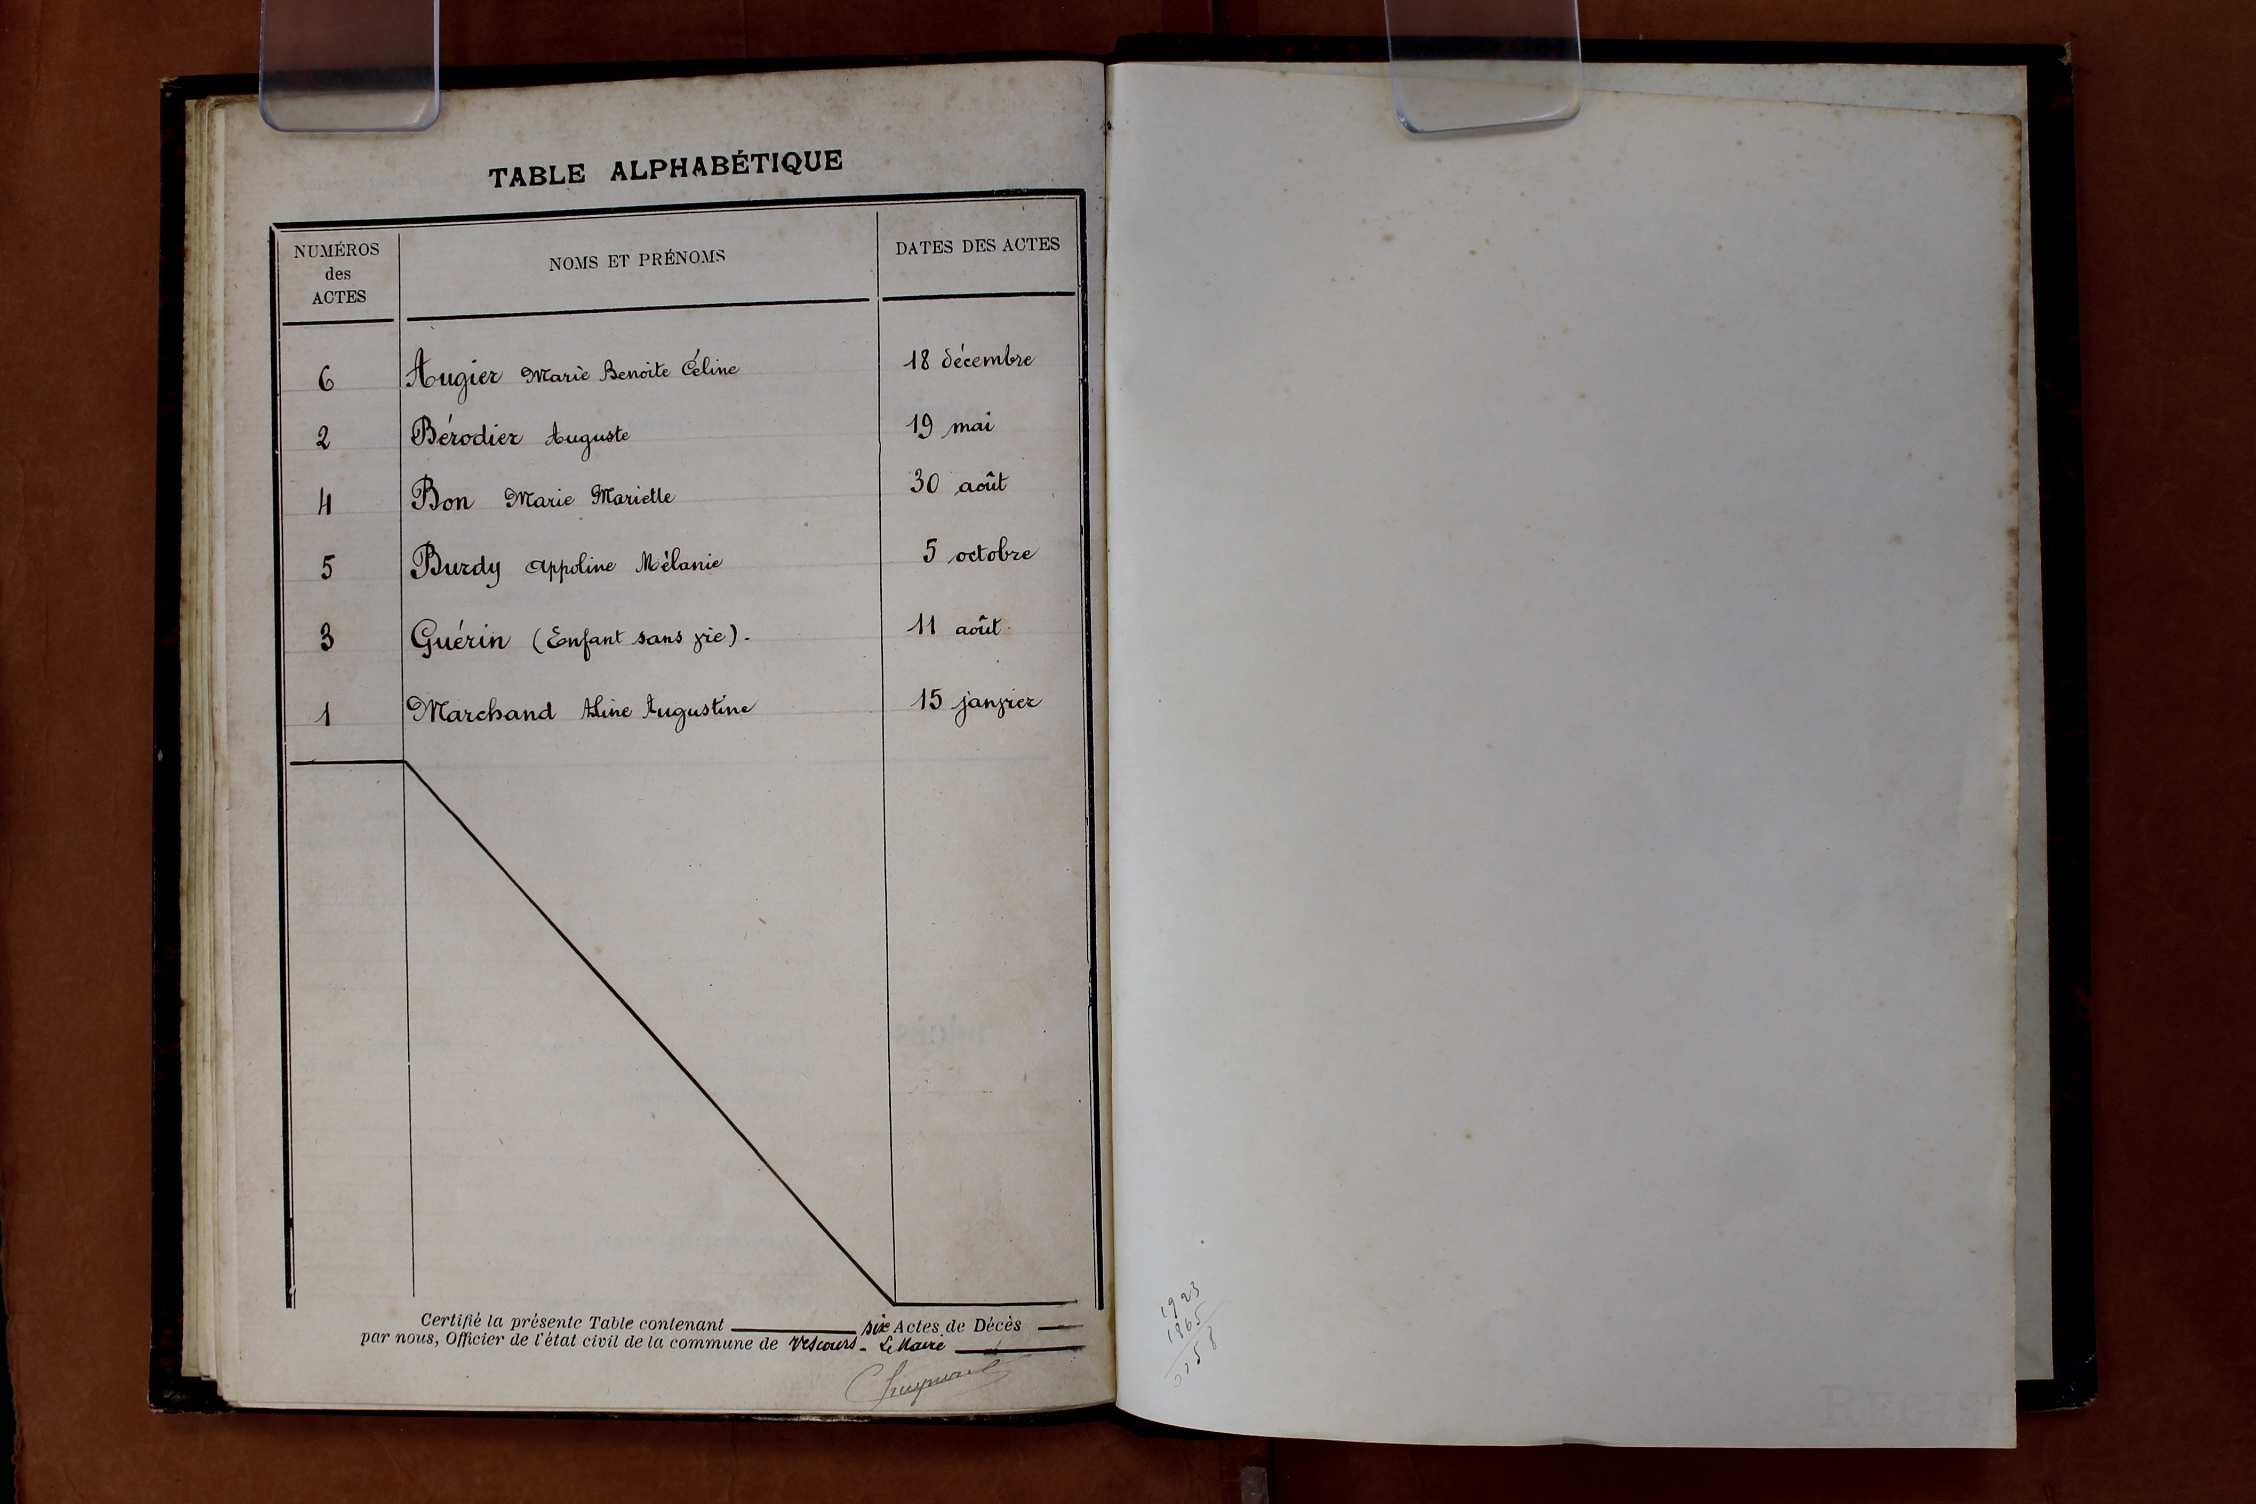 TABLE ALPHABÉTIQUE
NUMÉROS des ACTES NOMS ET PRÉNOMS DATES DES ACTES
6 Augier Marie Benoite Céline 18 décembre
2 Bérodier Auguste 19 mai
4 Bon Marie Marielle 30 août
5 Burdy Appoline Mélanie 5 octobre
3 Guérin (Enfant sans vie). 11 août
1 Marchand Aline Augustine 15 janvier
Certifié la présente Table contenant six Actes de Décès
par nous, Officier de l'état civil de la commune de Vescours. Le Maire
1923
1865
58